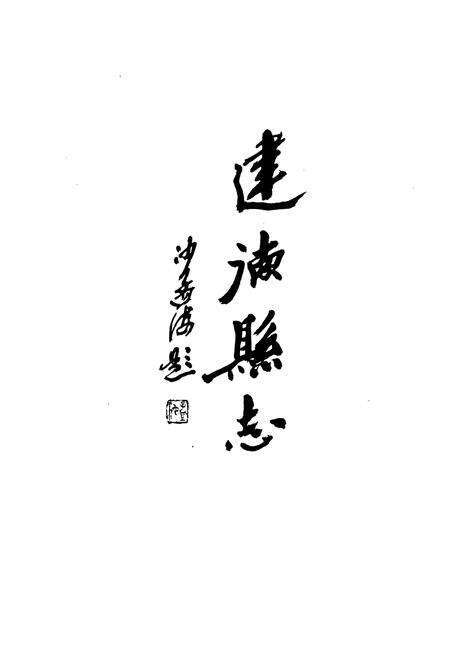 建德縣志
沙孟海題